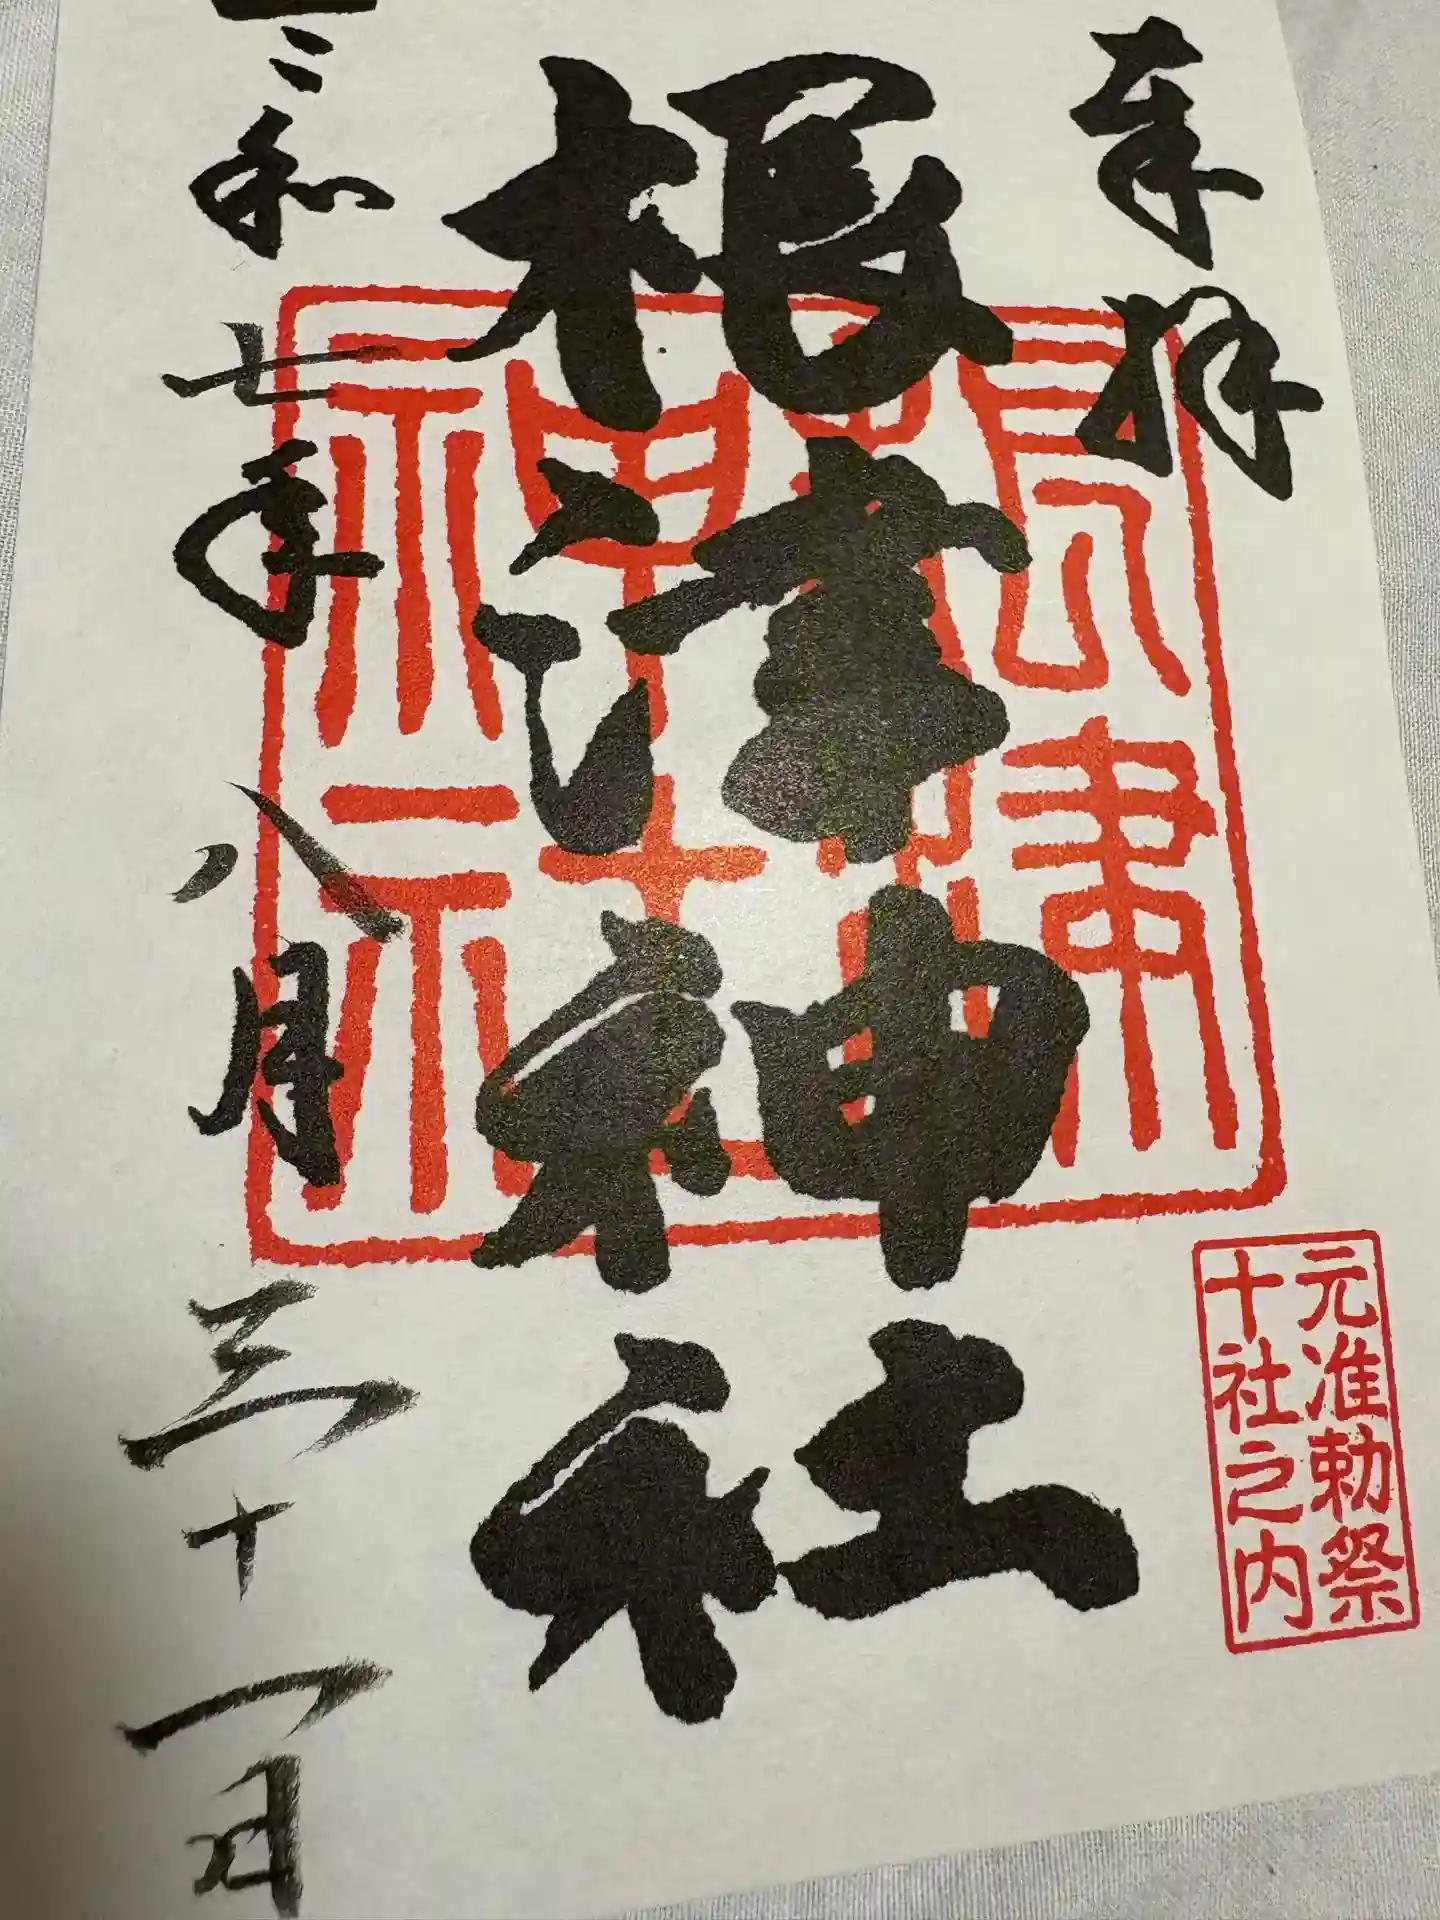 奉拝
根津神社
根津神社
元准勅祭
十社之内
和七年八月三十一日